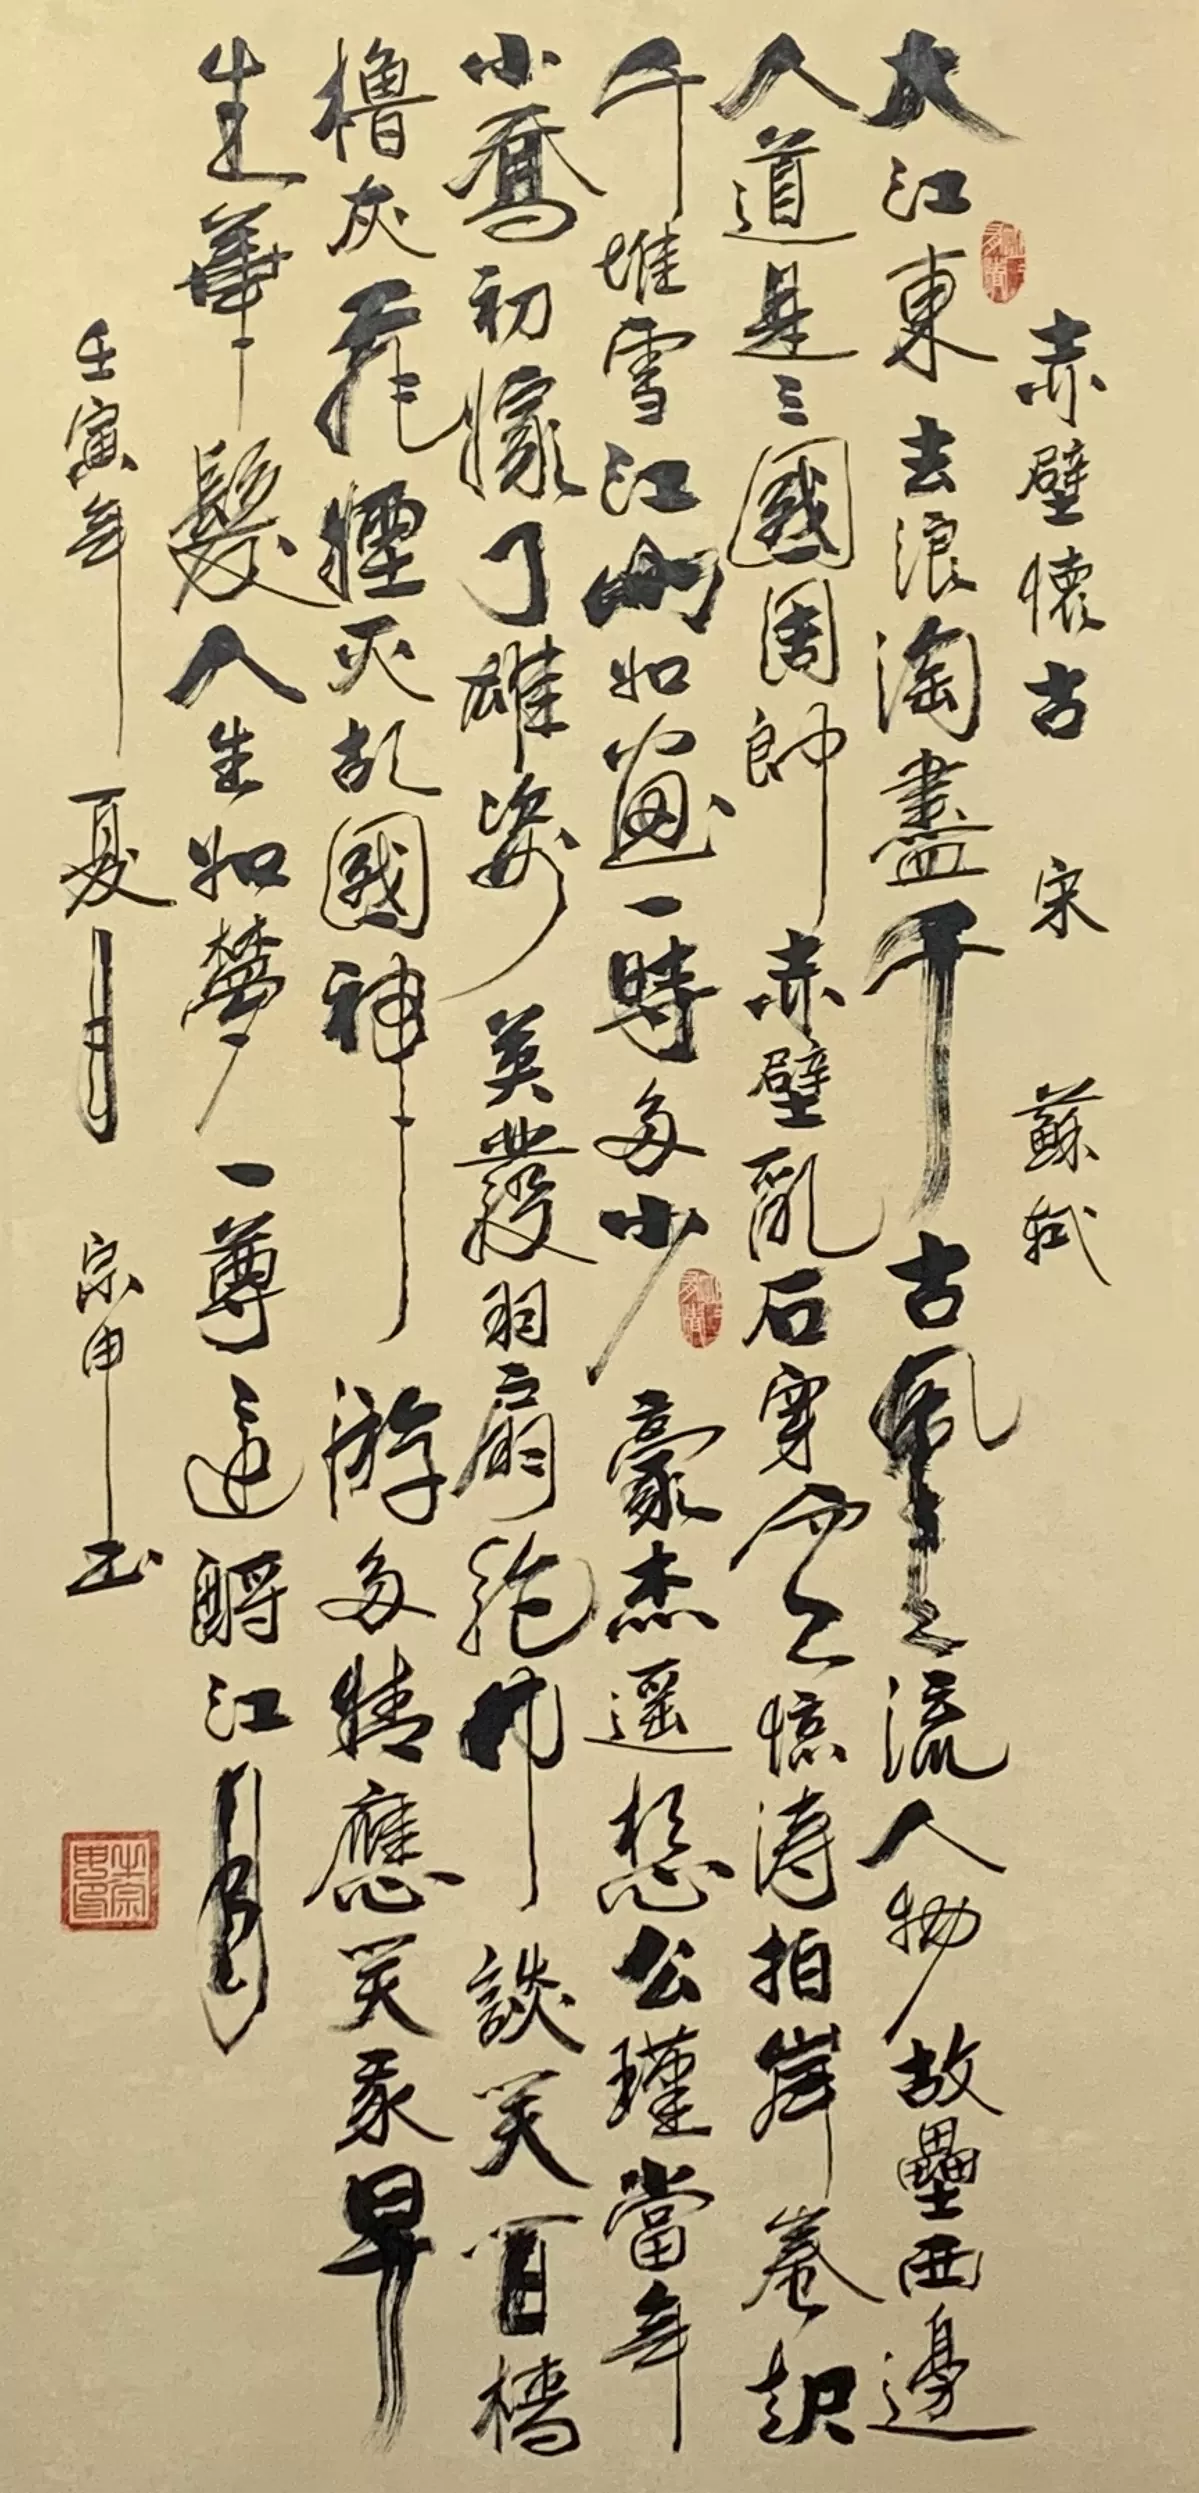 赤壁懷古 宋 蘇軾
大江東去浪淘盡千古風流人物故壘西邊
人道是三國周郎赤壁亂石穿空驚濤拍岸卷起
千堆雪江山如畫一時多少豪杰遥想公瑾當年
小喬初嫁了雄姿英發羽扇綸巾談笑間檣
櫓灰飛煙灭故國神游多情應笑我早
生華髮人生如夢一尊還酹江月
壬寅年夏月 宗申书